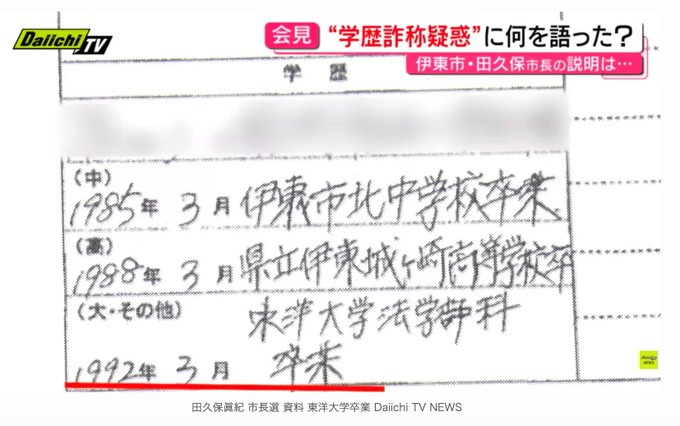 Daiichi TV
会見 “学歴詐称疑惑”に何を語った?
伊東市・田久保市長の説明は…
学 歴
(中)
1985年 3月 伊東市北中学校卒業
(高)
1988年 3月 県立伊東城ヶ崎高等学校卒
(大・その他)
東洋大学法学部科
1992年 3月 卒業
NEWS
田久保眞紀 市長選 資料 東洋大学卒業 Daiichi TV NEWS